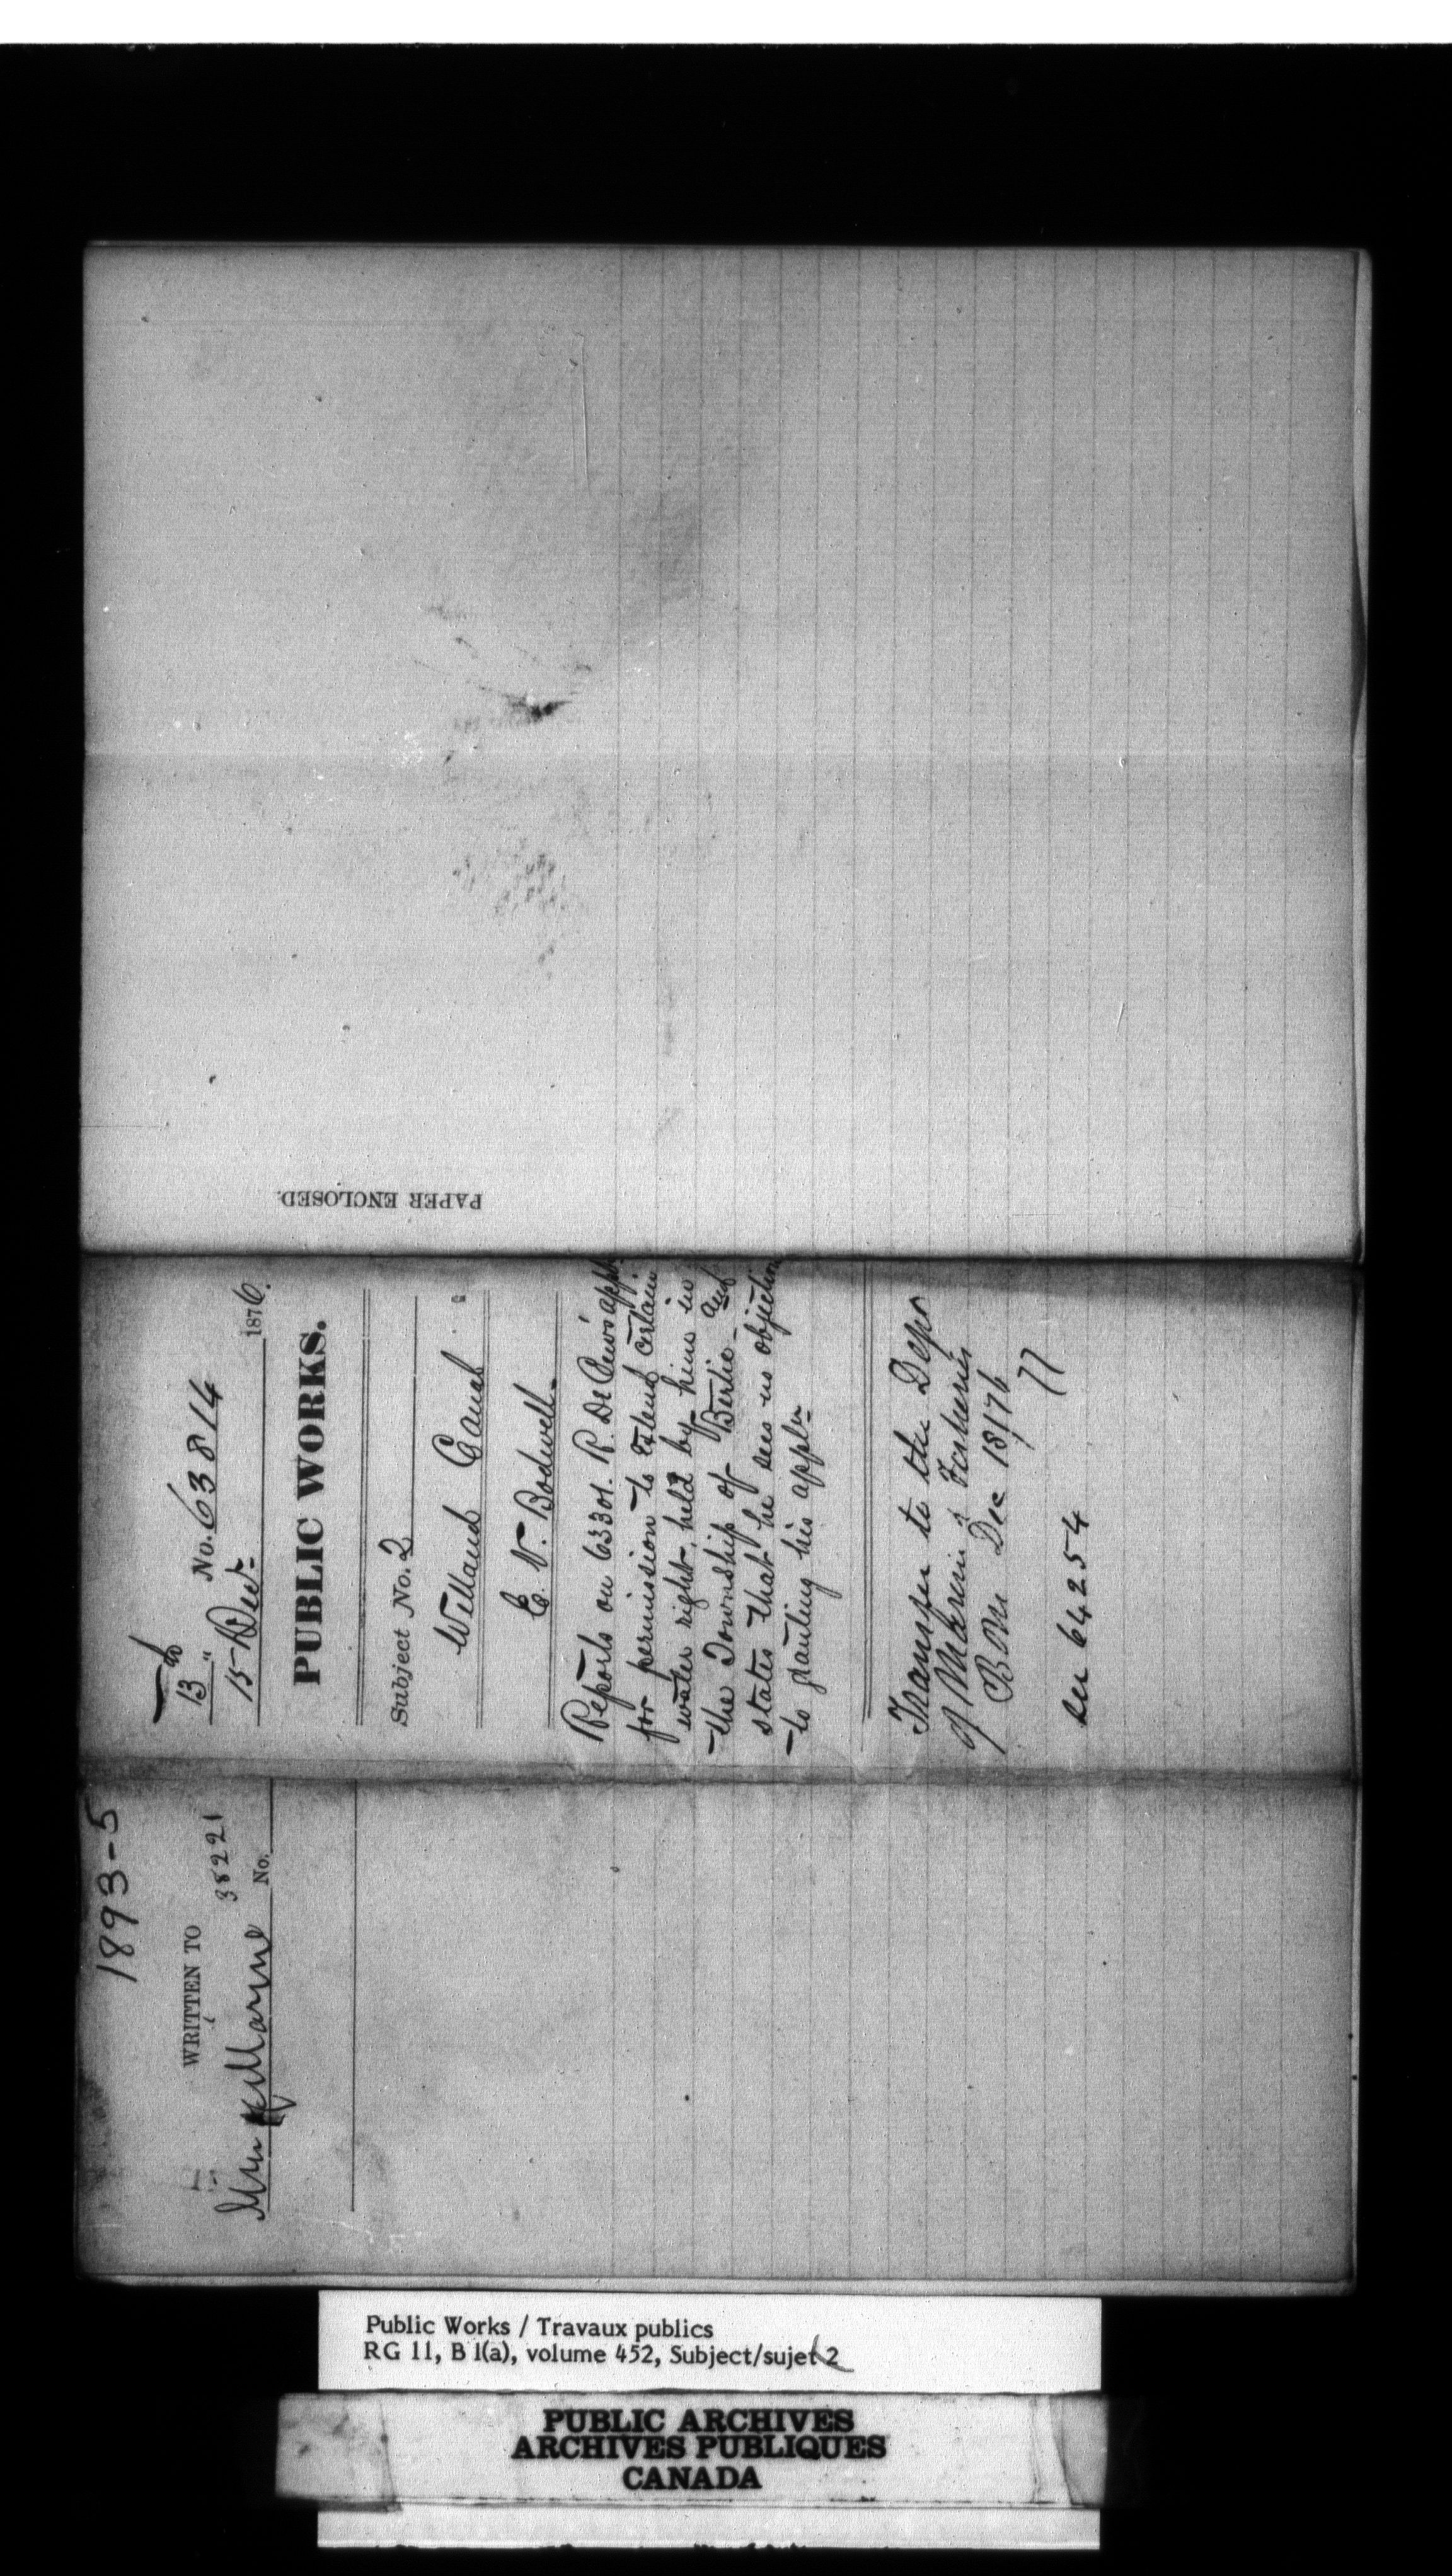 PAPER ENCLOSED.
13 "
No. 63814
15 Dect- 1876.
PUBLIC WORKS.
Subject No. 2
Welland Canal
E. V. Bodwell-
Reports on 63301. R. De Cew's appn
for permission to Extend certain
water right, held by him in
the Township of Bertie- and
states that he sees no objection
to granting his appln-
Transfer to the Depn
of Marine & Fisheries
Dec 18/76
77
See 64254
1893-5
WRITTEN TO
38221
Min of Marine No.
Public Works / Travaux publics
RG 11, B 1(a), volume 452, Subject/sujet 2
PUBLIC ARCHIVES
ARCHIVES PUBLIQUES
CANADA